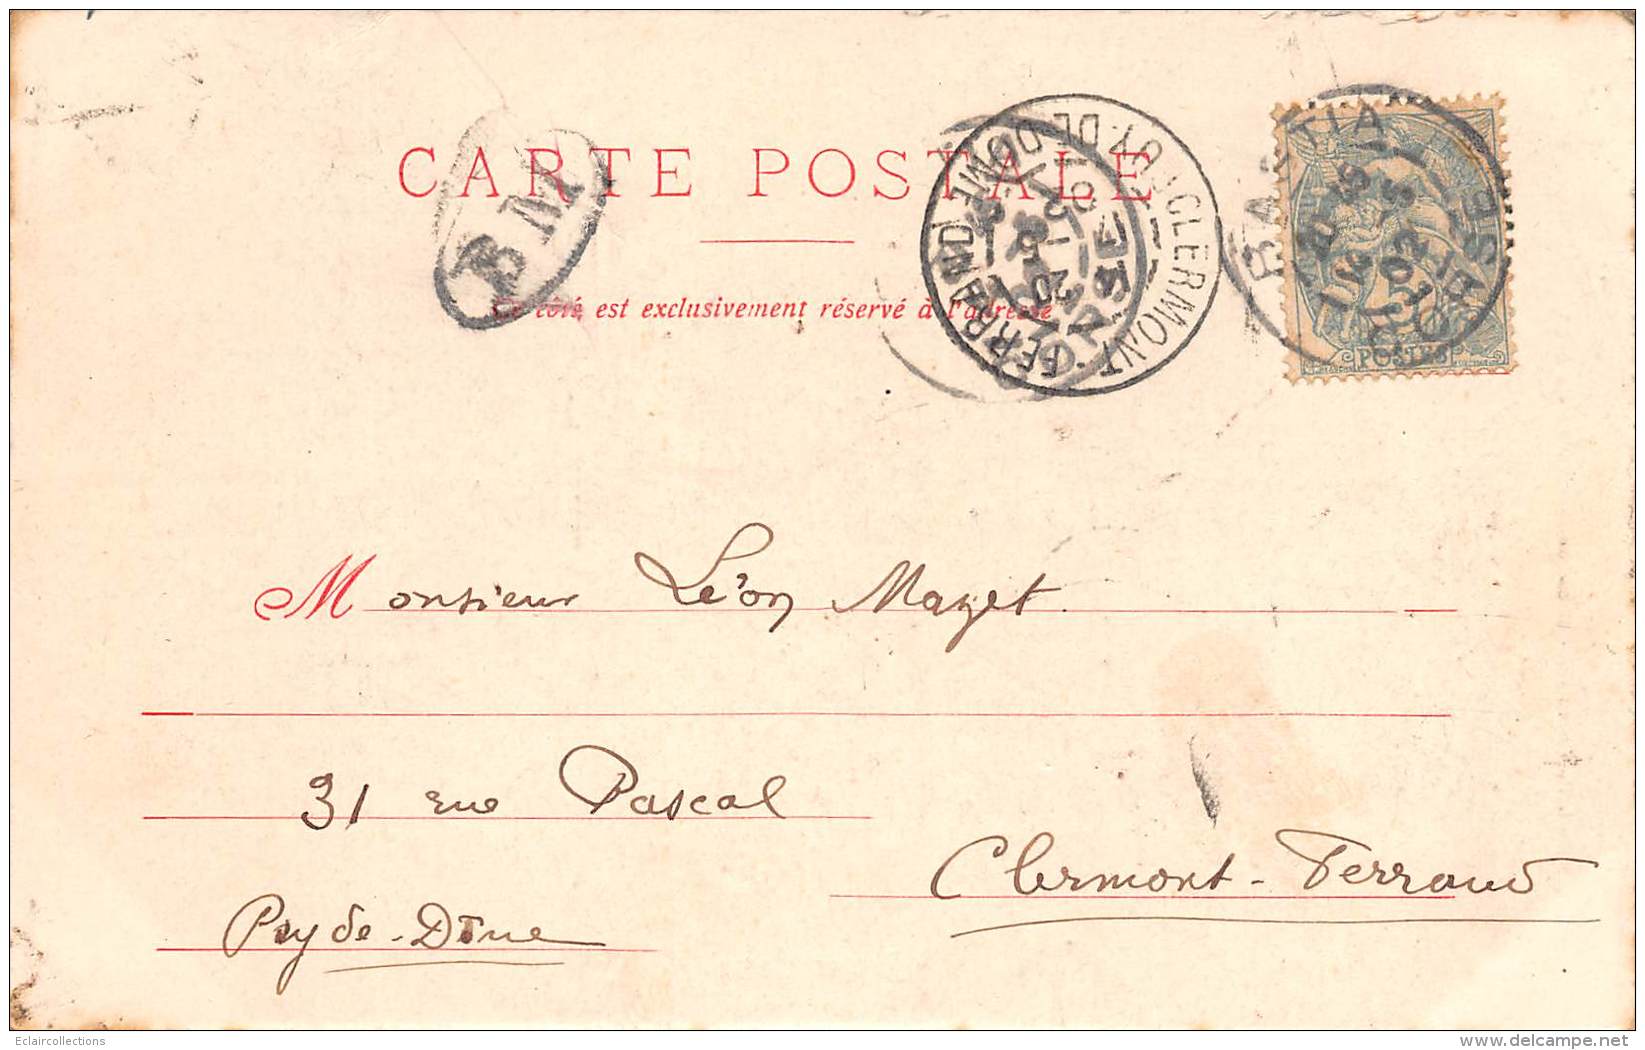 CARTE POSTALE
BM
Ce côté est exclusivement réservé à l'adresse
CLERMONT-FERRAND
PUY-DE-DOME
BASTIA
CORSE
02
POSTES
Monsieur Léon Mazet.
31 rue Pascal
Clermont-Ferrand
Puy de-Dôme
Eclaircollections
delcampe.net